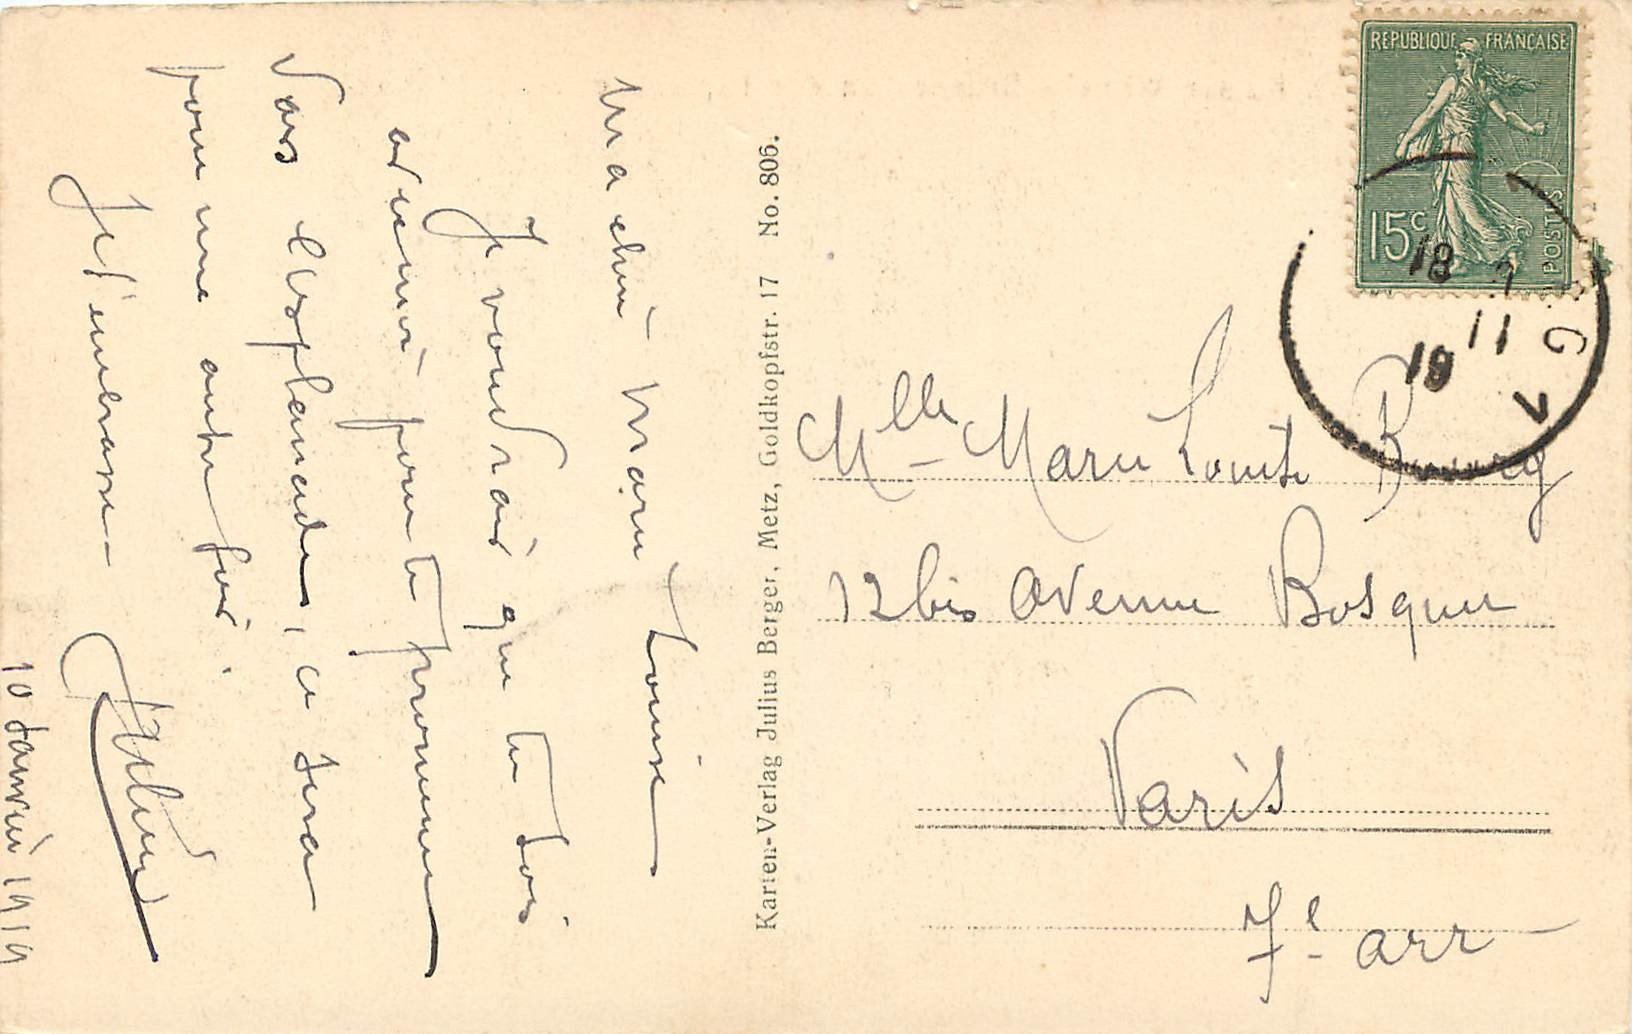 Ma chère Marie Louise
Je voudrais que tu sois
ici pour te promener
sur l'esplanade, ce sera
pour une autre fois.
Je t'embrasse
10 Janvier 1919
Karten-Verlag Julius Berger, Metz, Goldkopfstr. 17 No. 806.
REPUBLIQUE FRANÇAISE
15c
POSTES
18
11
19
Mlle Marie Louise
12 bis Avenue Bosquet
Paris
7e arr